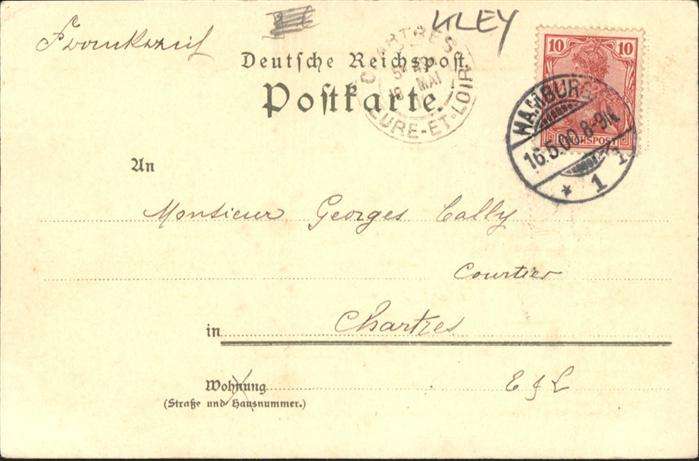 KLEY
Frankreich
Deutsche Reichspost.
Postkarte.
CHARTRES
MAI
EURE-ET-LOIR
10 10
REICHSPOST
HAMBURG
16.5.00.8-9N.
* 1 1.
An
Monsieur Georges Cally
Courtier
in Chartres
Wohnung
E & L
(Straße und Hausnummer.)